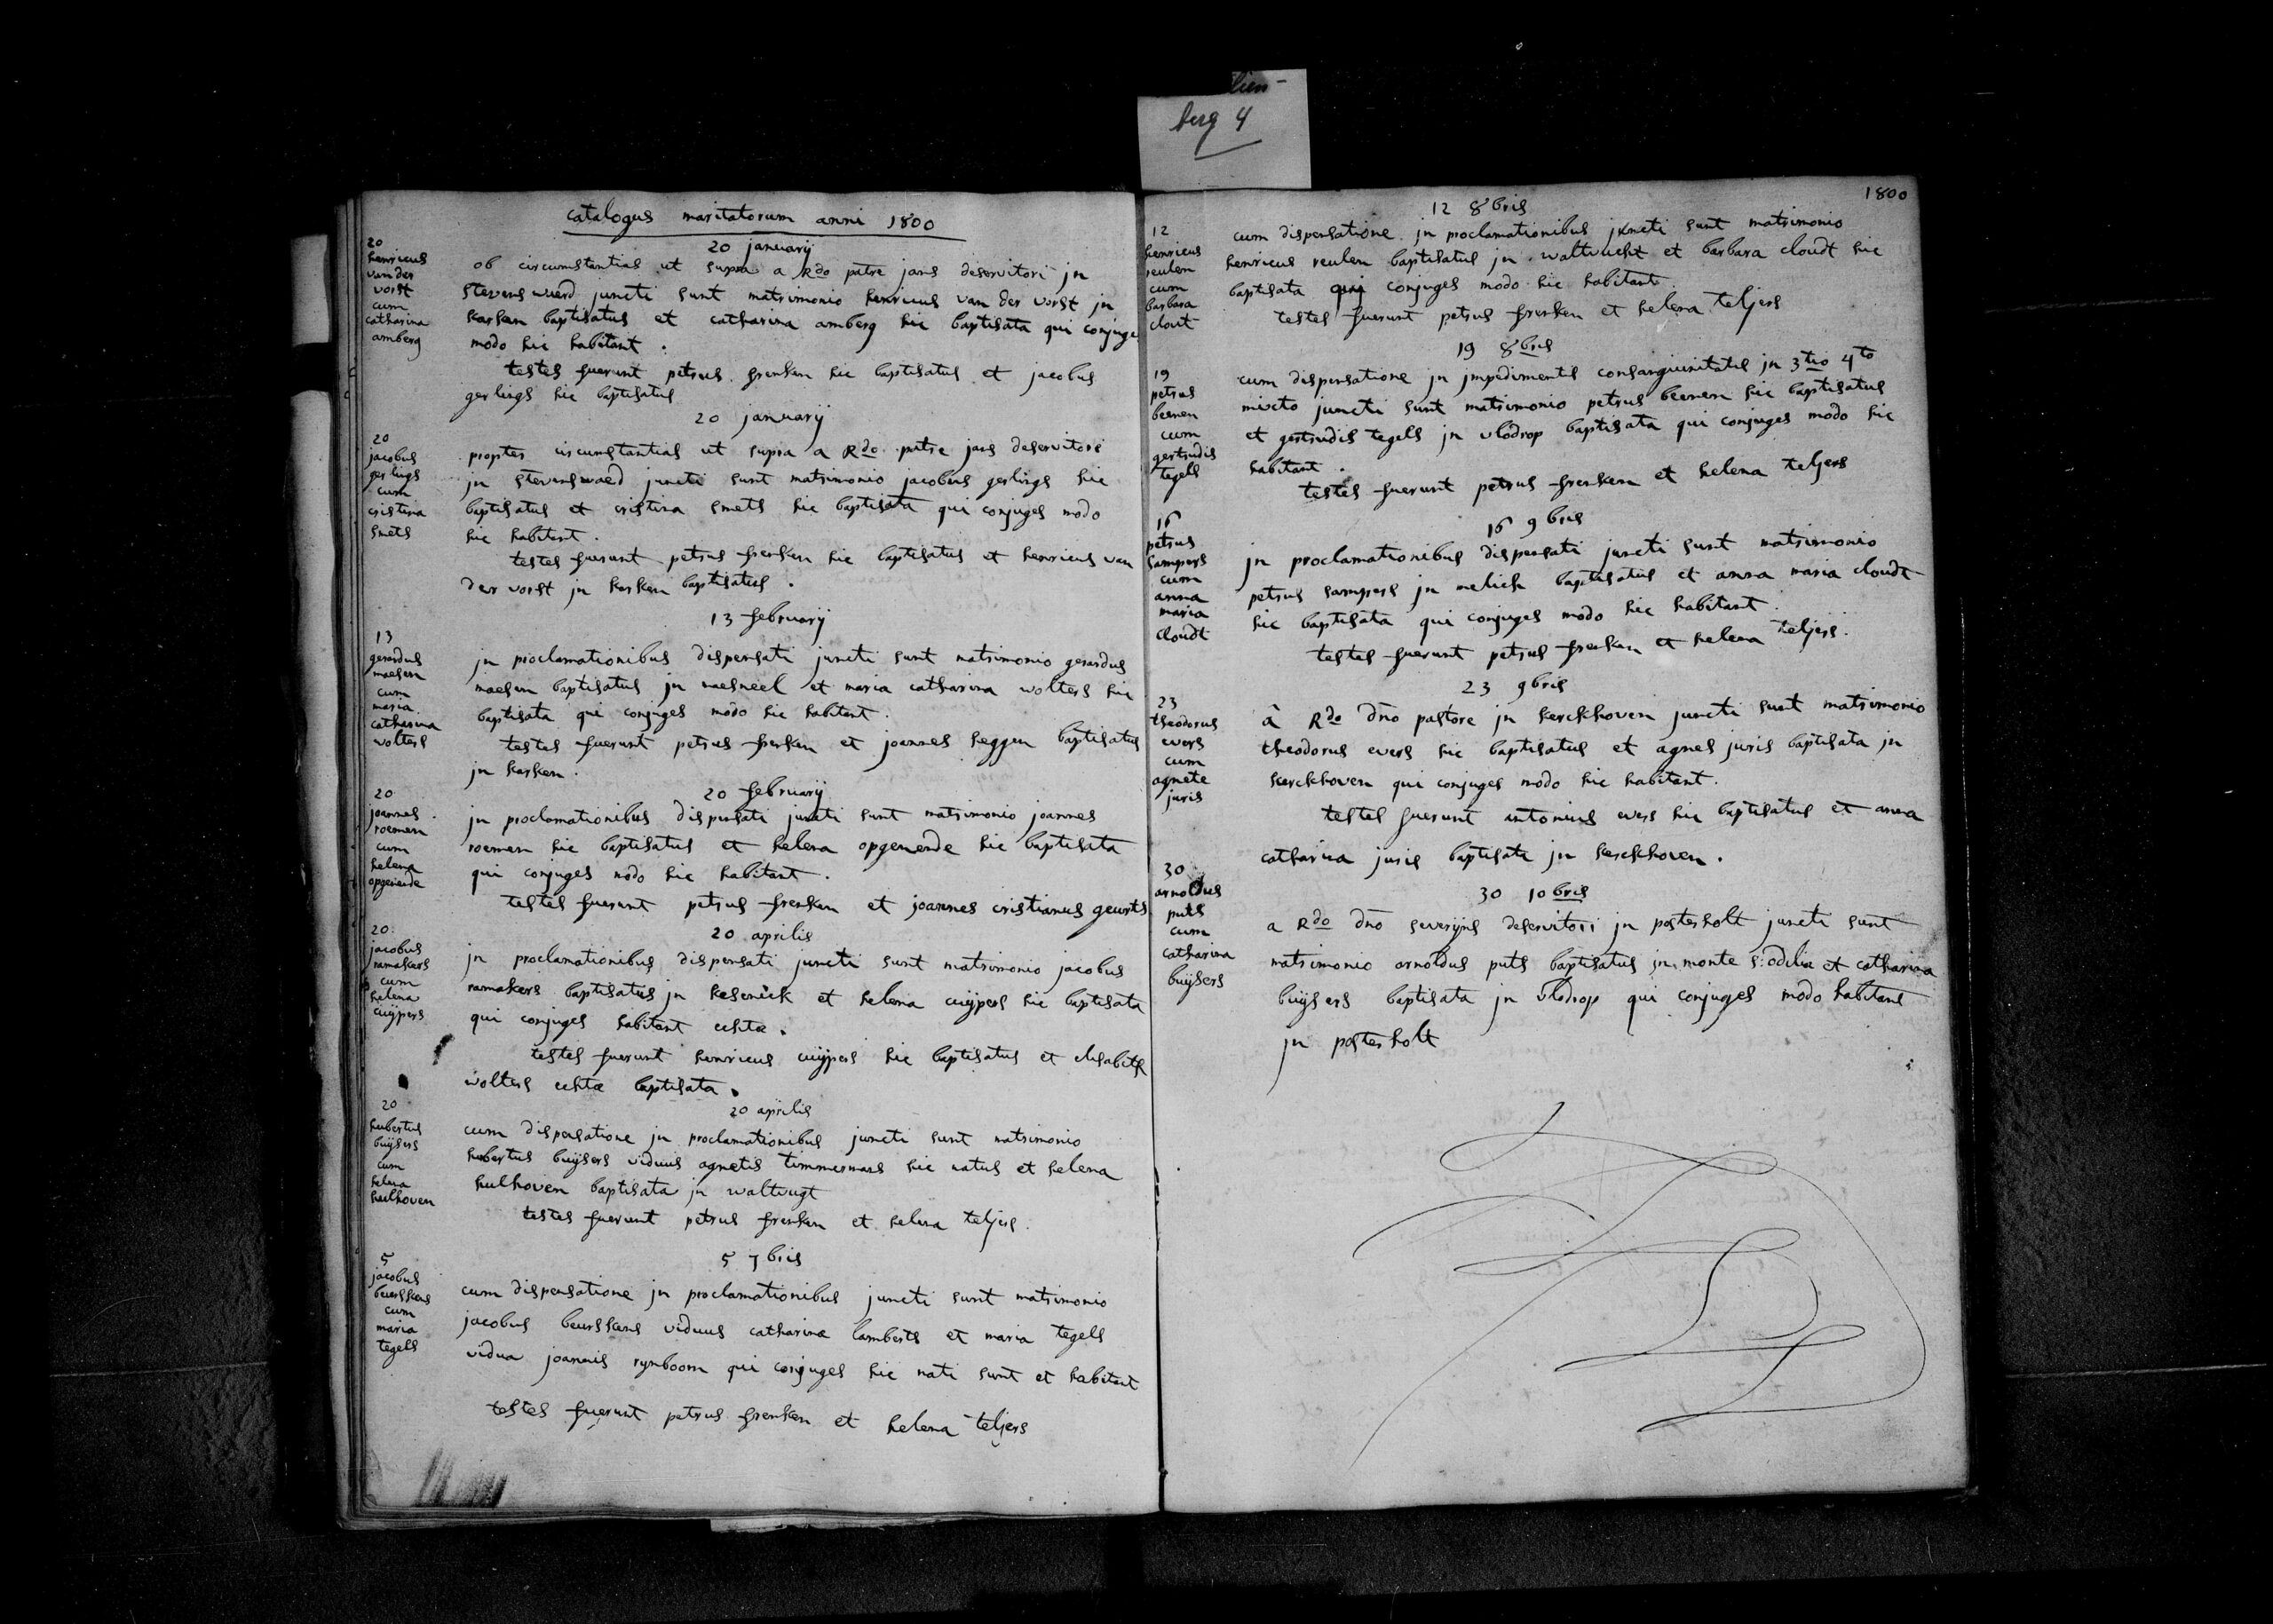 lien-
berg 4
catalogus maritatorum anni 1800
20 januarij
20
henricus
van der
vorst
cum
catharina
amberg
ob circumstantias ut supra a Rdo patre jans deservitori jn
stevenswaerd juncti sunt matrimonio henricus van der vorst jn
karken baptisatus et catharina amberg hic baptisata qui conjuges
modo hic habitant.
testes fuerunt petrus frenken hic baptisatus et jacobus
gerlings hic baptisatus
20 januarij
20
jacobus
gerlings
cum
cristina
smets
propter circumstantias ut supra a Rdo patre jans deservitore
jn stevenswaerd juncti sunt matrimonio jacobus gerlings hic
baptisatus et cristina smets hic baptisata qui conjuges modo
hic habitant.
testes fuerunt petrus frenken hic baptisatus et henricus van
der vorst jn karken baptisatus.
13 februarij
13
gerardus
maesen
cum
maria
catharina
wolters
jn proclamationibus dispensati juncti sunt matrimonio gerardus
maesen baptisatus jn maesneel et maria catharina wolters hic
baptisata qui conjuges modo hic habitant.
testes fuerunt petrus frenken et joannes heggen baptisatus
jn karken.
20 februarij
20
joannes
roemen
cum
helena
opgenende
jn proclamationibus dispensati juncti sunt matrimonio joannes
roemen hic baptisatus et helena opgenende hic baptisata
qui conjuges modo hic habitant.
testes fuerunt petrus frenken et joannes cristianus geurts
20 aprilis
20
jacobus
ramakers
cum
helena
cuijpers
jn proclamationibus dispensati juncti sunt matrimonio jacobus
ramakers baptisatus jn kesenick et helena cuijpers hic baptisata
qui conjuges habitant echtæ.
testes fuerunt henricus cuijpers hic baptisatus et elisabeth
wolters echtæ baptisata.
20 aprilis
20
hubertus
buijsers
cum
helena
hulhoven
cum dispensatione jn proclamationibus juncti sunt matrimonio
hubertus buijsers viduus agnetis timmermans hic natus et helena
hulhoven baptisata jn waltvugt
testes fuerunt petrus frenken et helena teljers.
5 7bris
5
jacobus
beurskens
cum
maria
tegels
cum dispensatione jn proclamationibus juncti sunt matrimonio
jacobus beurskens viduus catharinæ lamberts et maria tegels
vidua joannis rynboom qui conjuges hic nati sunt et habitant
testes fuerunt petrus frenken et helena teljers
1800
12 8bris
12
henricus
reulen
cum
barbara
clout
cum dispensatione jn proclamationibus juncti sunt matrimonio
henricus reulen baptisatus jn waltvucht et barbara cloudt hic
baptisata qui conjuges modo hic habitant.
testes fuerunt petrus frenken et helena teljers
19 8bris
19
petrus
beenen
cum
gertrudis
tegels
cum dispensatione jn jmpedimentis consanguinitatis jn 3tio 4to
mixto juncti sunt matrimonio petrus beenen hic baptisatus
et gertrudis tegels jn vlodrop baptisata qui conjuges modo hic
habitant.
testes fuerunt petrus frenken et helena teljers
16 9bris
16
petrus
sampers
cum
anna
maria
cloudt
jn proclamationibus dispensati juncti sunt matrimonio
petrus sampers jn melich baptisatus et anna maria cloudt
hic baptisata qui conjuges modo hic habitant.
testes fuerunt petrus frenken et helena teljers.
23 9bris
23
theodorus
evers
cum
agnete
juris
â Rdo dno pastore jn kerckhoven juncti sunt matrimonio
theodorus evers hic baptisatus et agnes juris baptisata jn
kerckhoven qui conjuges modo hic habitant.
testes fuerunt antonius evers hic baptisatus et anna
catharina juris baptisata jn kerckhoven.
30 10bris
30
arnoldus
puts
cum
catharina
buijsers
a Rdo dno severijns deservitori jn posterholt juncti sunt
matrimonio arnoldus puts baptisatus jn monte s: odiliæ et catharina
buijsers baptisata jn vlodrop qui conjuges modo habitant
jn posterholt